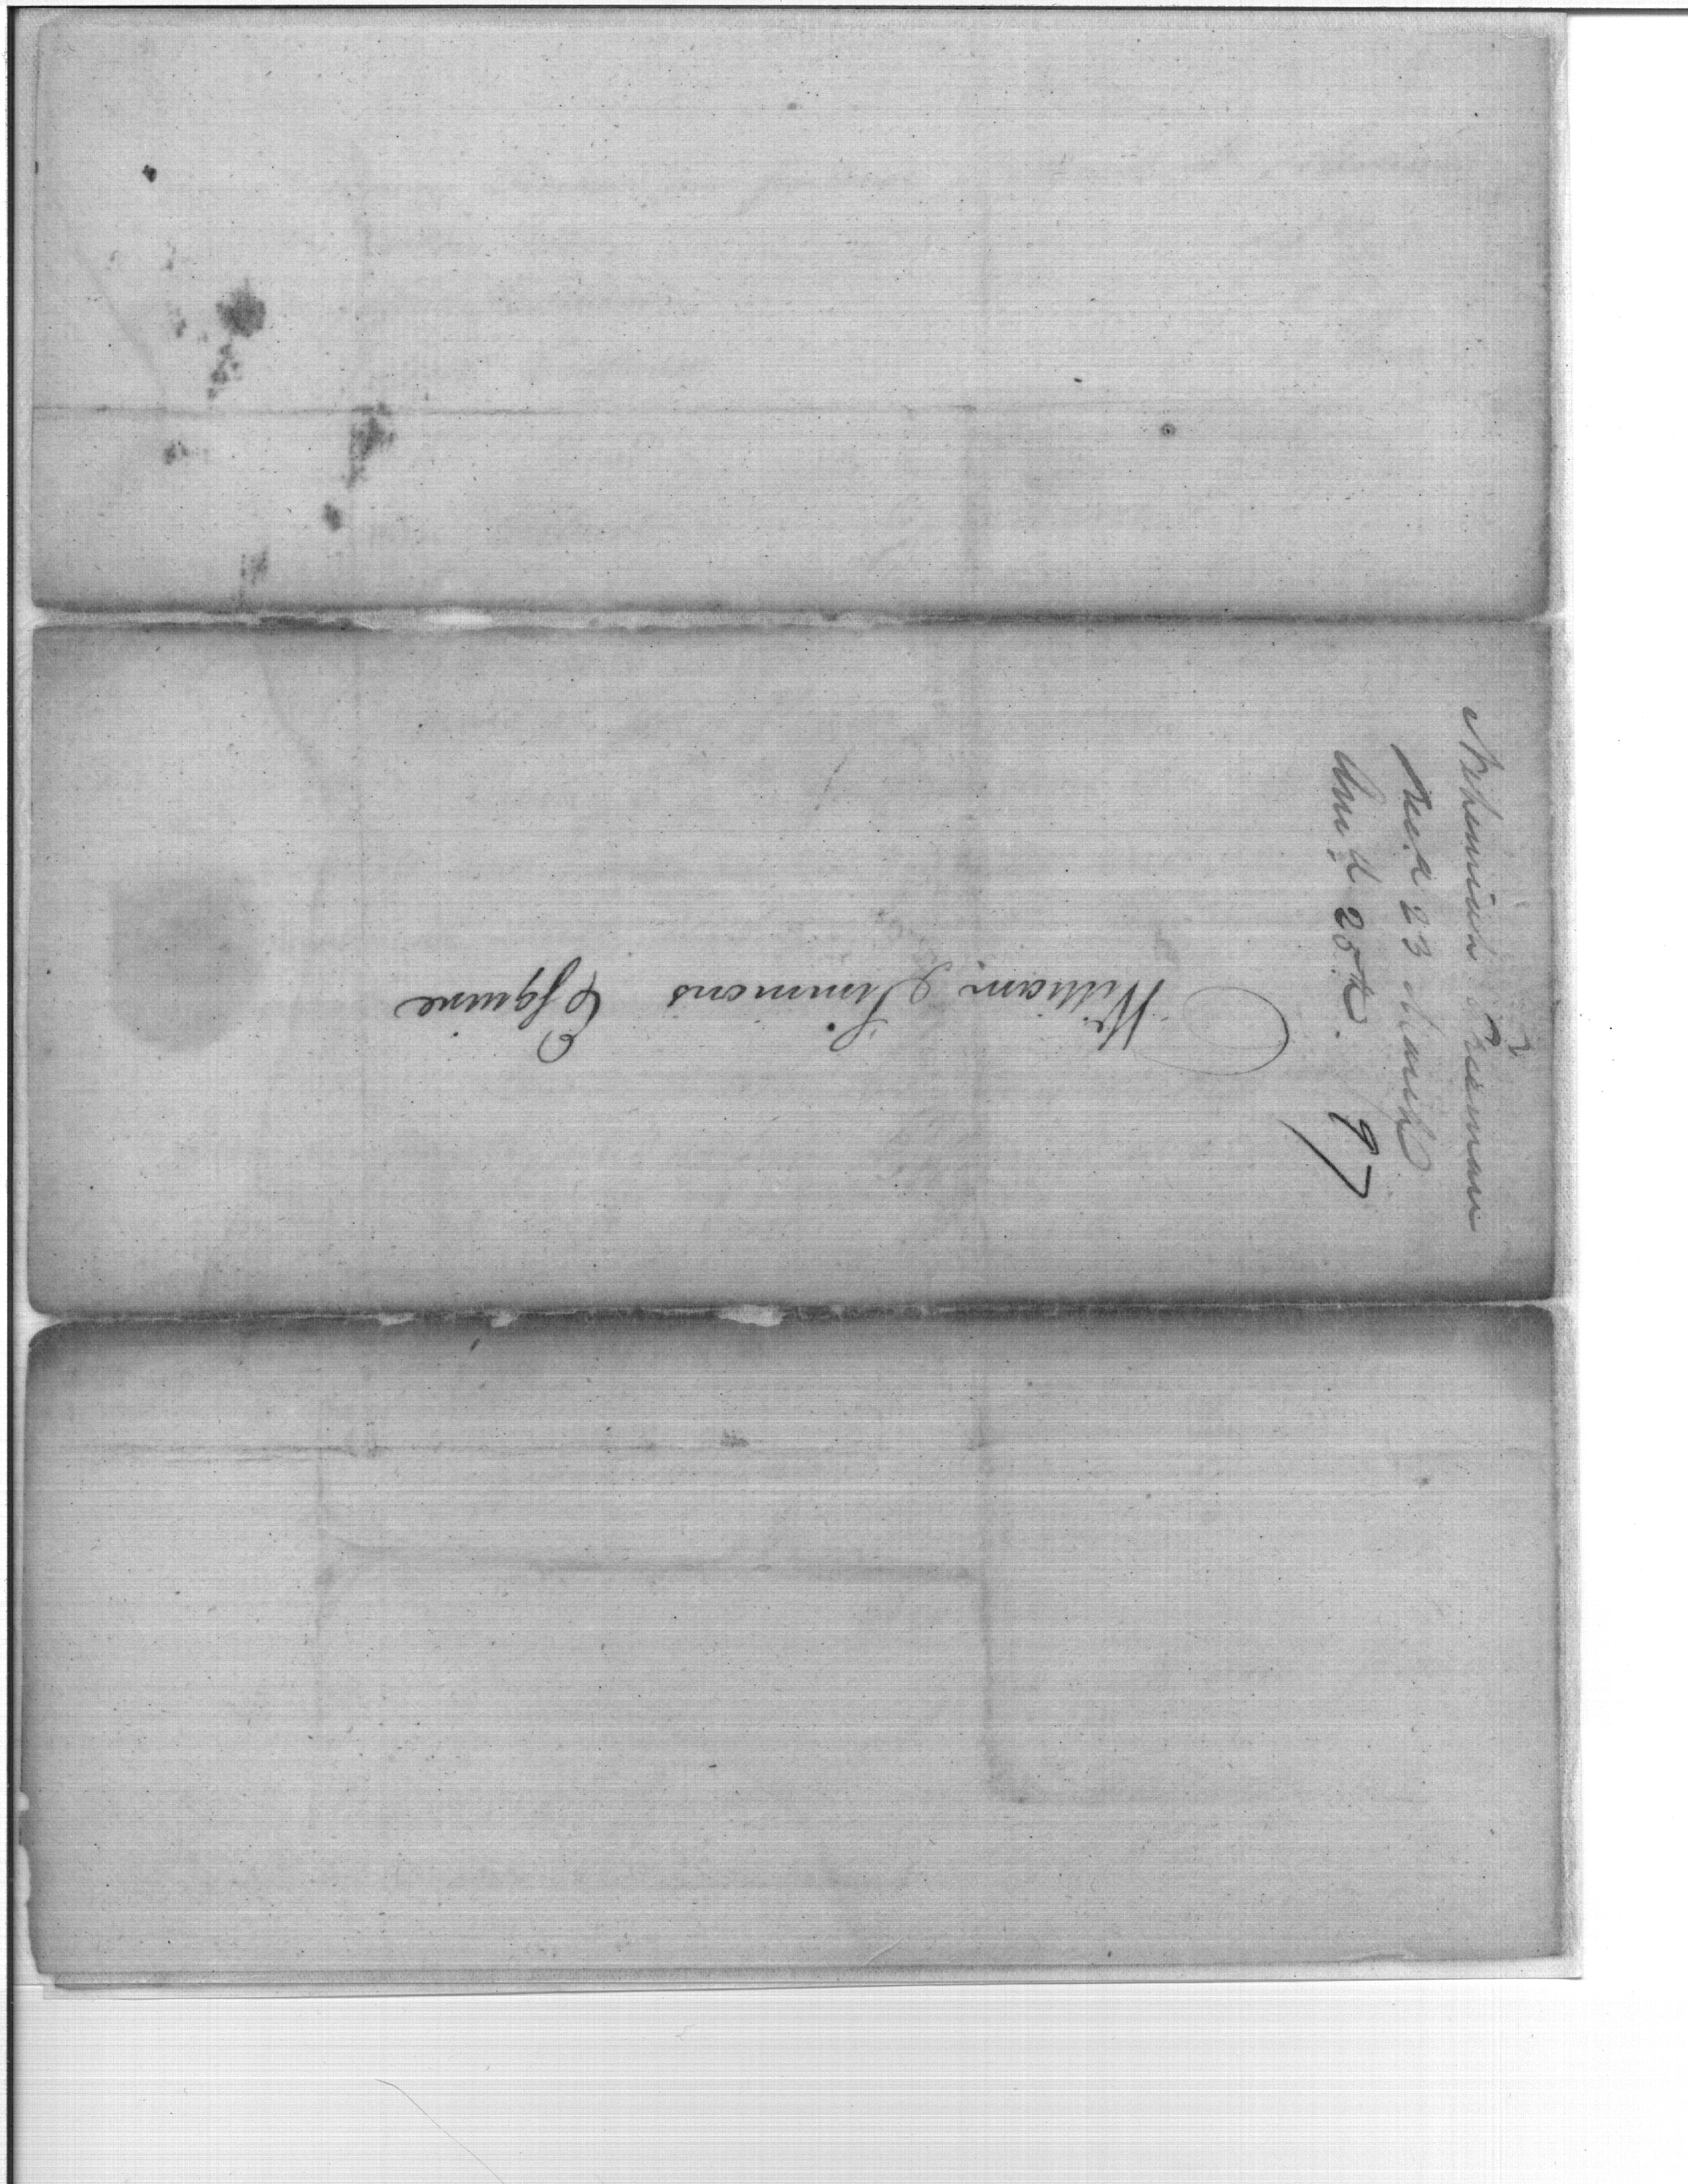 William Simmons Esquire
Nehemiah Freeman
Rec.d 23 March
Ans.d 25th. 97